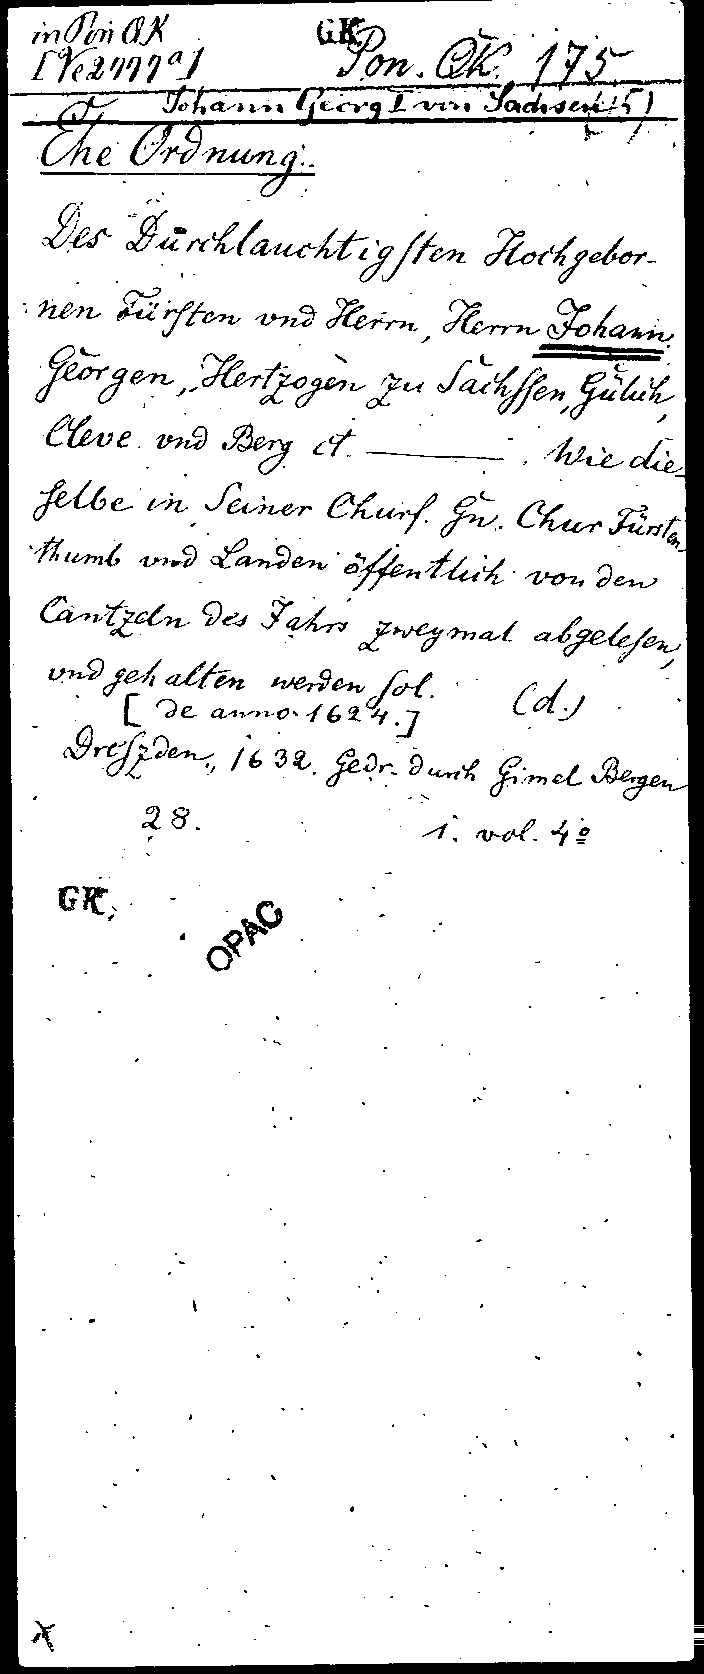 in Pon QK GK
[Ve 2777a] Pon. QK. 175
Johann Georg I von Sachsen (5)
Ehe Ordnung.
Des Durchlauchtigsten Hochgebor-
nen Fürsten vnd Herrn, Herrn Johann
Georgen, Hertzogen zu Sachssen, Gülich,
Cleve vnd Berg ct. ——— . Wie die-
selbe in Seiner Churf. Gn. Chur Fürsten
thumb vnd Landen öffentlich von den
Cantzeln des Jahrs zweymal abgelesen,
vnd gehalten werden sol. (d.)
[de anno 1624.]
Dreszden, 1632. Gedr. durch Gimel Bergen
28. 1. vol. 4º
GK.
OPAC